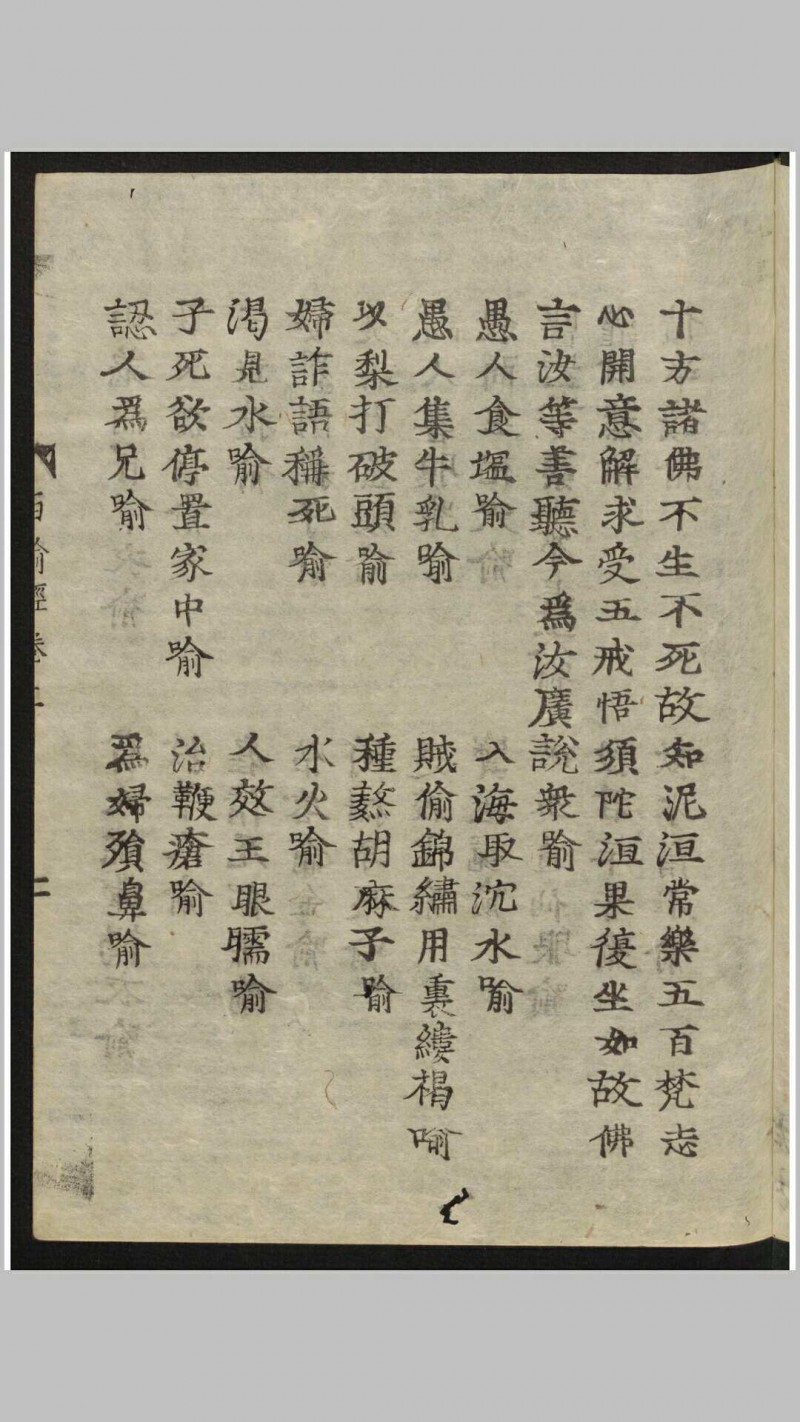 十方諸佛不生不死故知泥洹常樂五百梵志
心開意解求受五戒悟須陀洹果復坐如故佛
言汝等善聽今爲汝廣說衆喻
愚人食塩喻　入海取沉水喻
愚人集牛乳喻　賊偷錦繡用裹㲣褐喻
以梨打破頭喻　種𤎅胡麻子喻
婦詐語稱死喻　水火喻
渴見水喻　人效王眼瞤喻
子死欲停置家中喻　治鞭瘡喻
認人爲兄喻　爲婦貿鼻喻
百喻經卷上　二